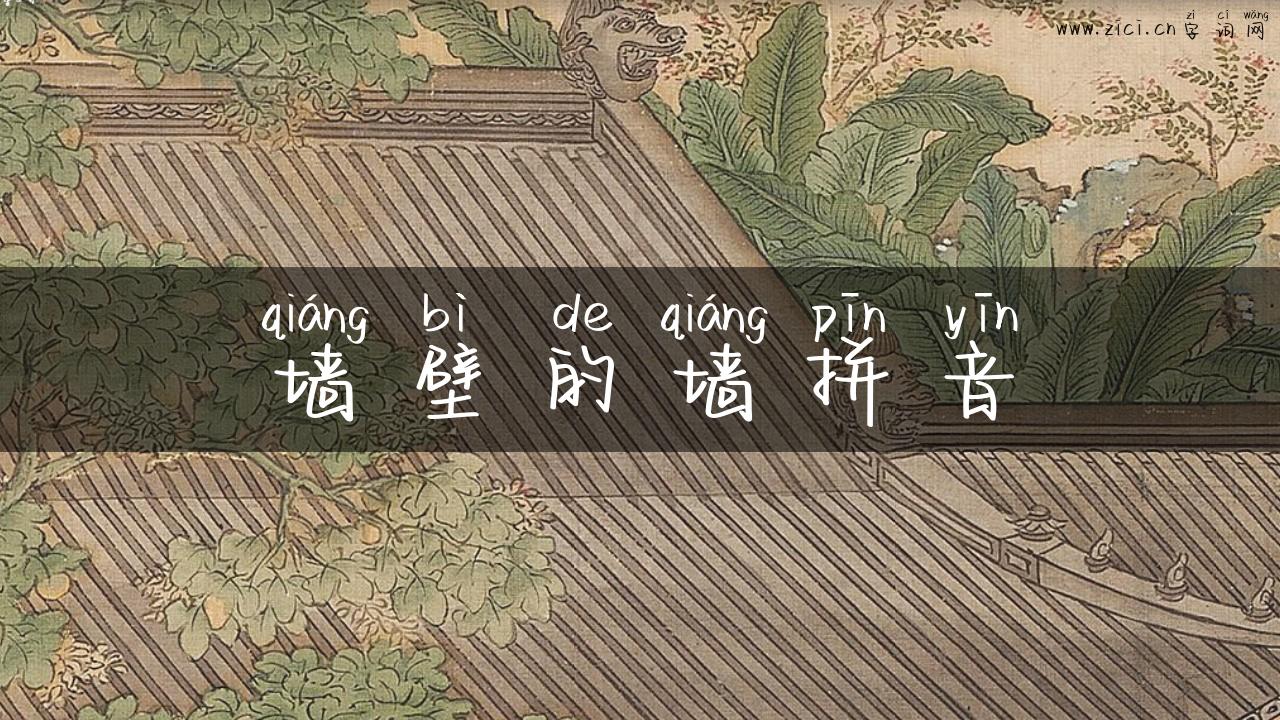 zì cí wǎng
www.zici.cn 字词网
qiáng bì de qiáng pīn yīn
墙壁的墙拼音